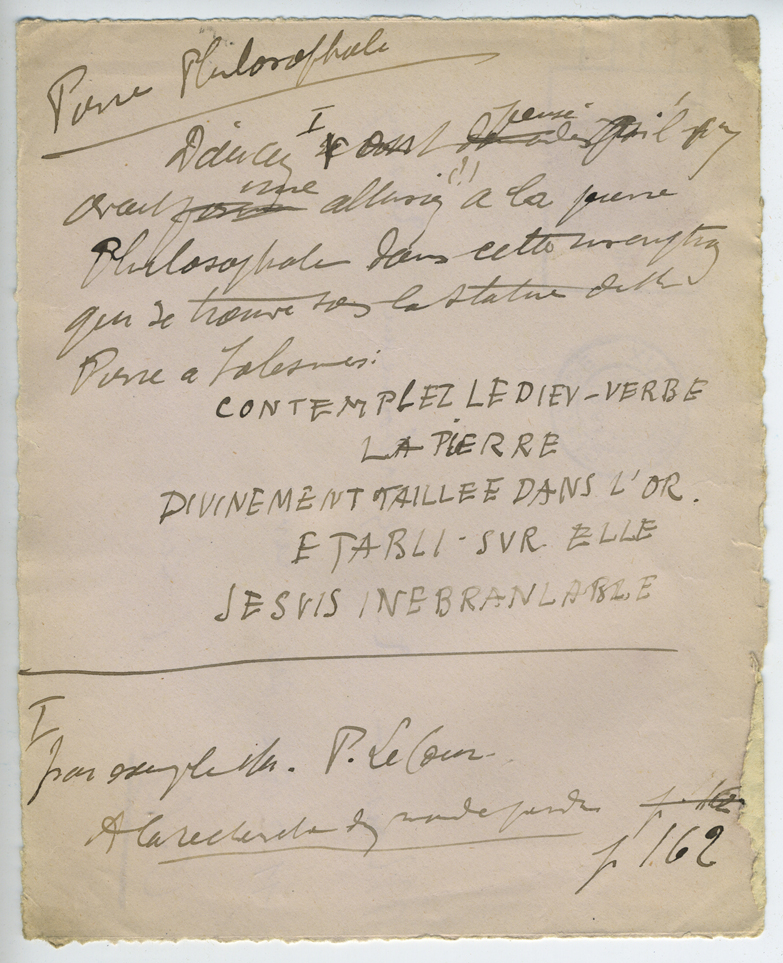 Pierre Philosophale
D'aucuns I ont pensé qu'il y
avait une allusion (?!) a la pierre
Philosophale dans cette inscription
qui se trouve sous la statue de St
Pierre a Solesmes:
CONTEMPLEZ LE DIEV-VERBE
LA PIERRE
DIVINEMENT TAILLEE DANS L'OR.
ETABLI-SVR ELLE
JE SVIS INEBRANLABLE
I
par exemple Mr. P. Le Cour
A la recherche d'un monde perdu
p 162